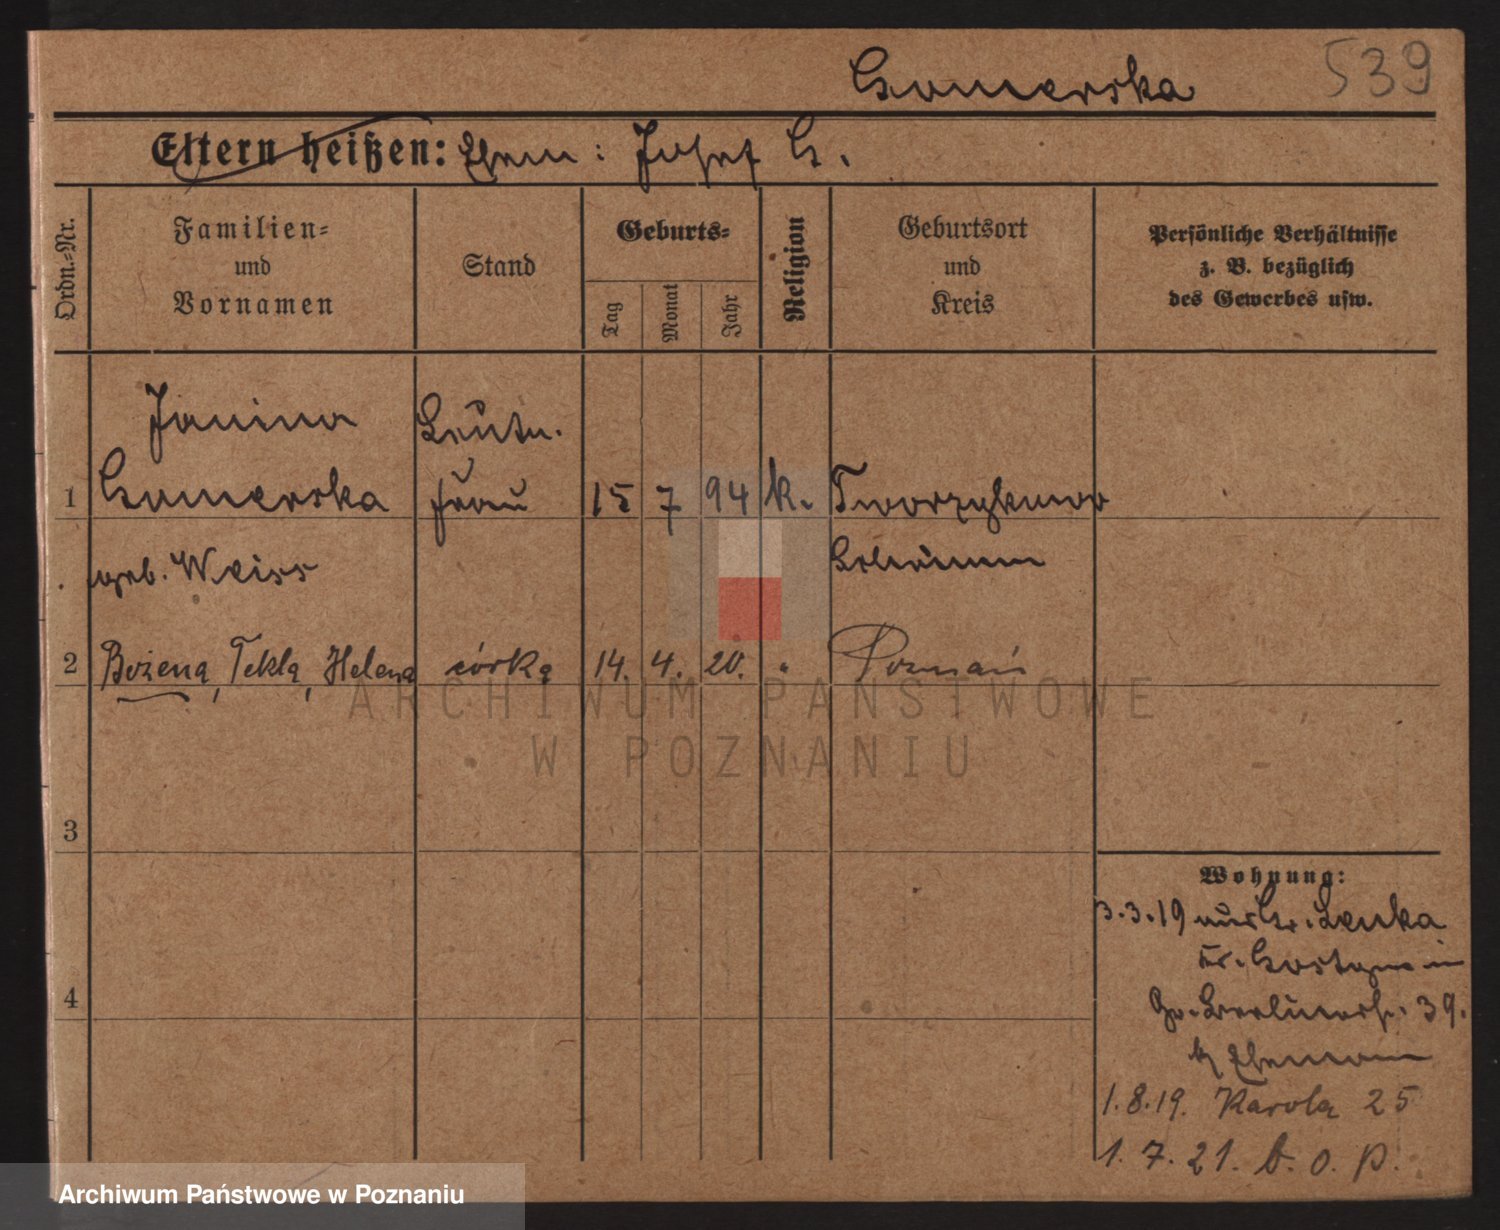 Gomerska
539
Eltern heißen: Ehem: Josef G.
Ordn.-Nr.
Familien-
und
Vornamen
Stand
Geburts-
Tag
Monat
Jahr
Religion
Geburtsort
und
Kreis
Persönliche Verhältnisse
z. B. bezüglich
des Gewerbes usw.
Janina
Leutn.
1 Gomerska frau 15 7 94 k.
geb. Weiss
2 Bożena, Tekla, Helena córka 14. 4. 20. " Poznań
3
4
Wohnung:
3.3.19 Lenka
Kr. Kosten in
39.
z Ehemann
1.8.19. Karola 25
1.7.21. b. o. p.
ARCHIWUM PAŃSTWOWE
W POZNANIU
Archiwum Państwowe w Poznaniu